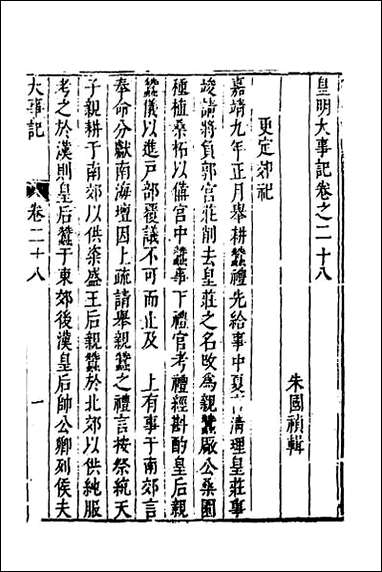 皇明大事記卷之二十八
朱國禎輯
更定郊祀
嘉靖九年正月舉耕蠶禮先給事中夏言清理皇莊事
竣請將負郭官莊削去皇莊之名改為親蠶廠公桑園
種植桑柘以備宮中蠶事下禮官考禮經斟酌皇后親
蠶儀以進戶部覆議不可而止及　上有事于南郊言
奉命分獻南海壇因上疏請舉親蠶之禮言按祭統天
子親耕于南郊以供粢盛王后親蠶於北郊以供純服
考之於漢則皇后蠶于東郊後漢皇后帥公卿列侯夫
大事記
卷二十八
一